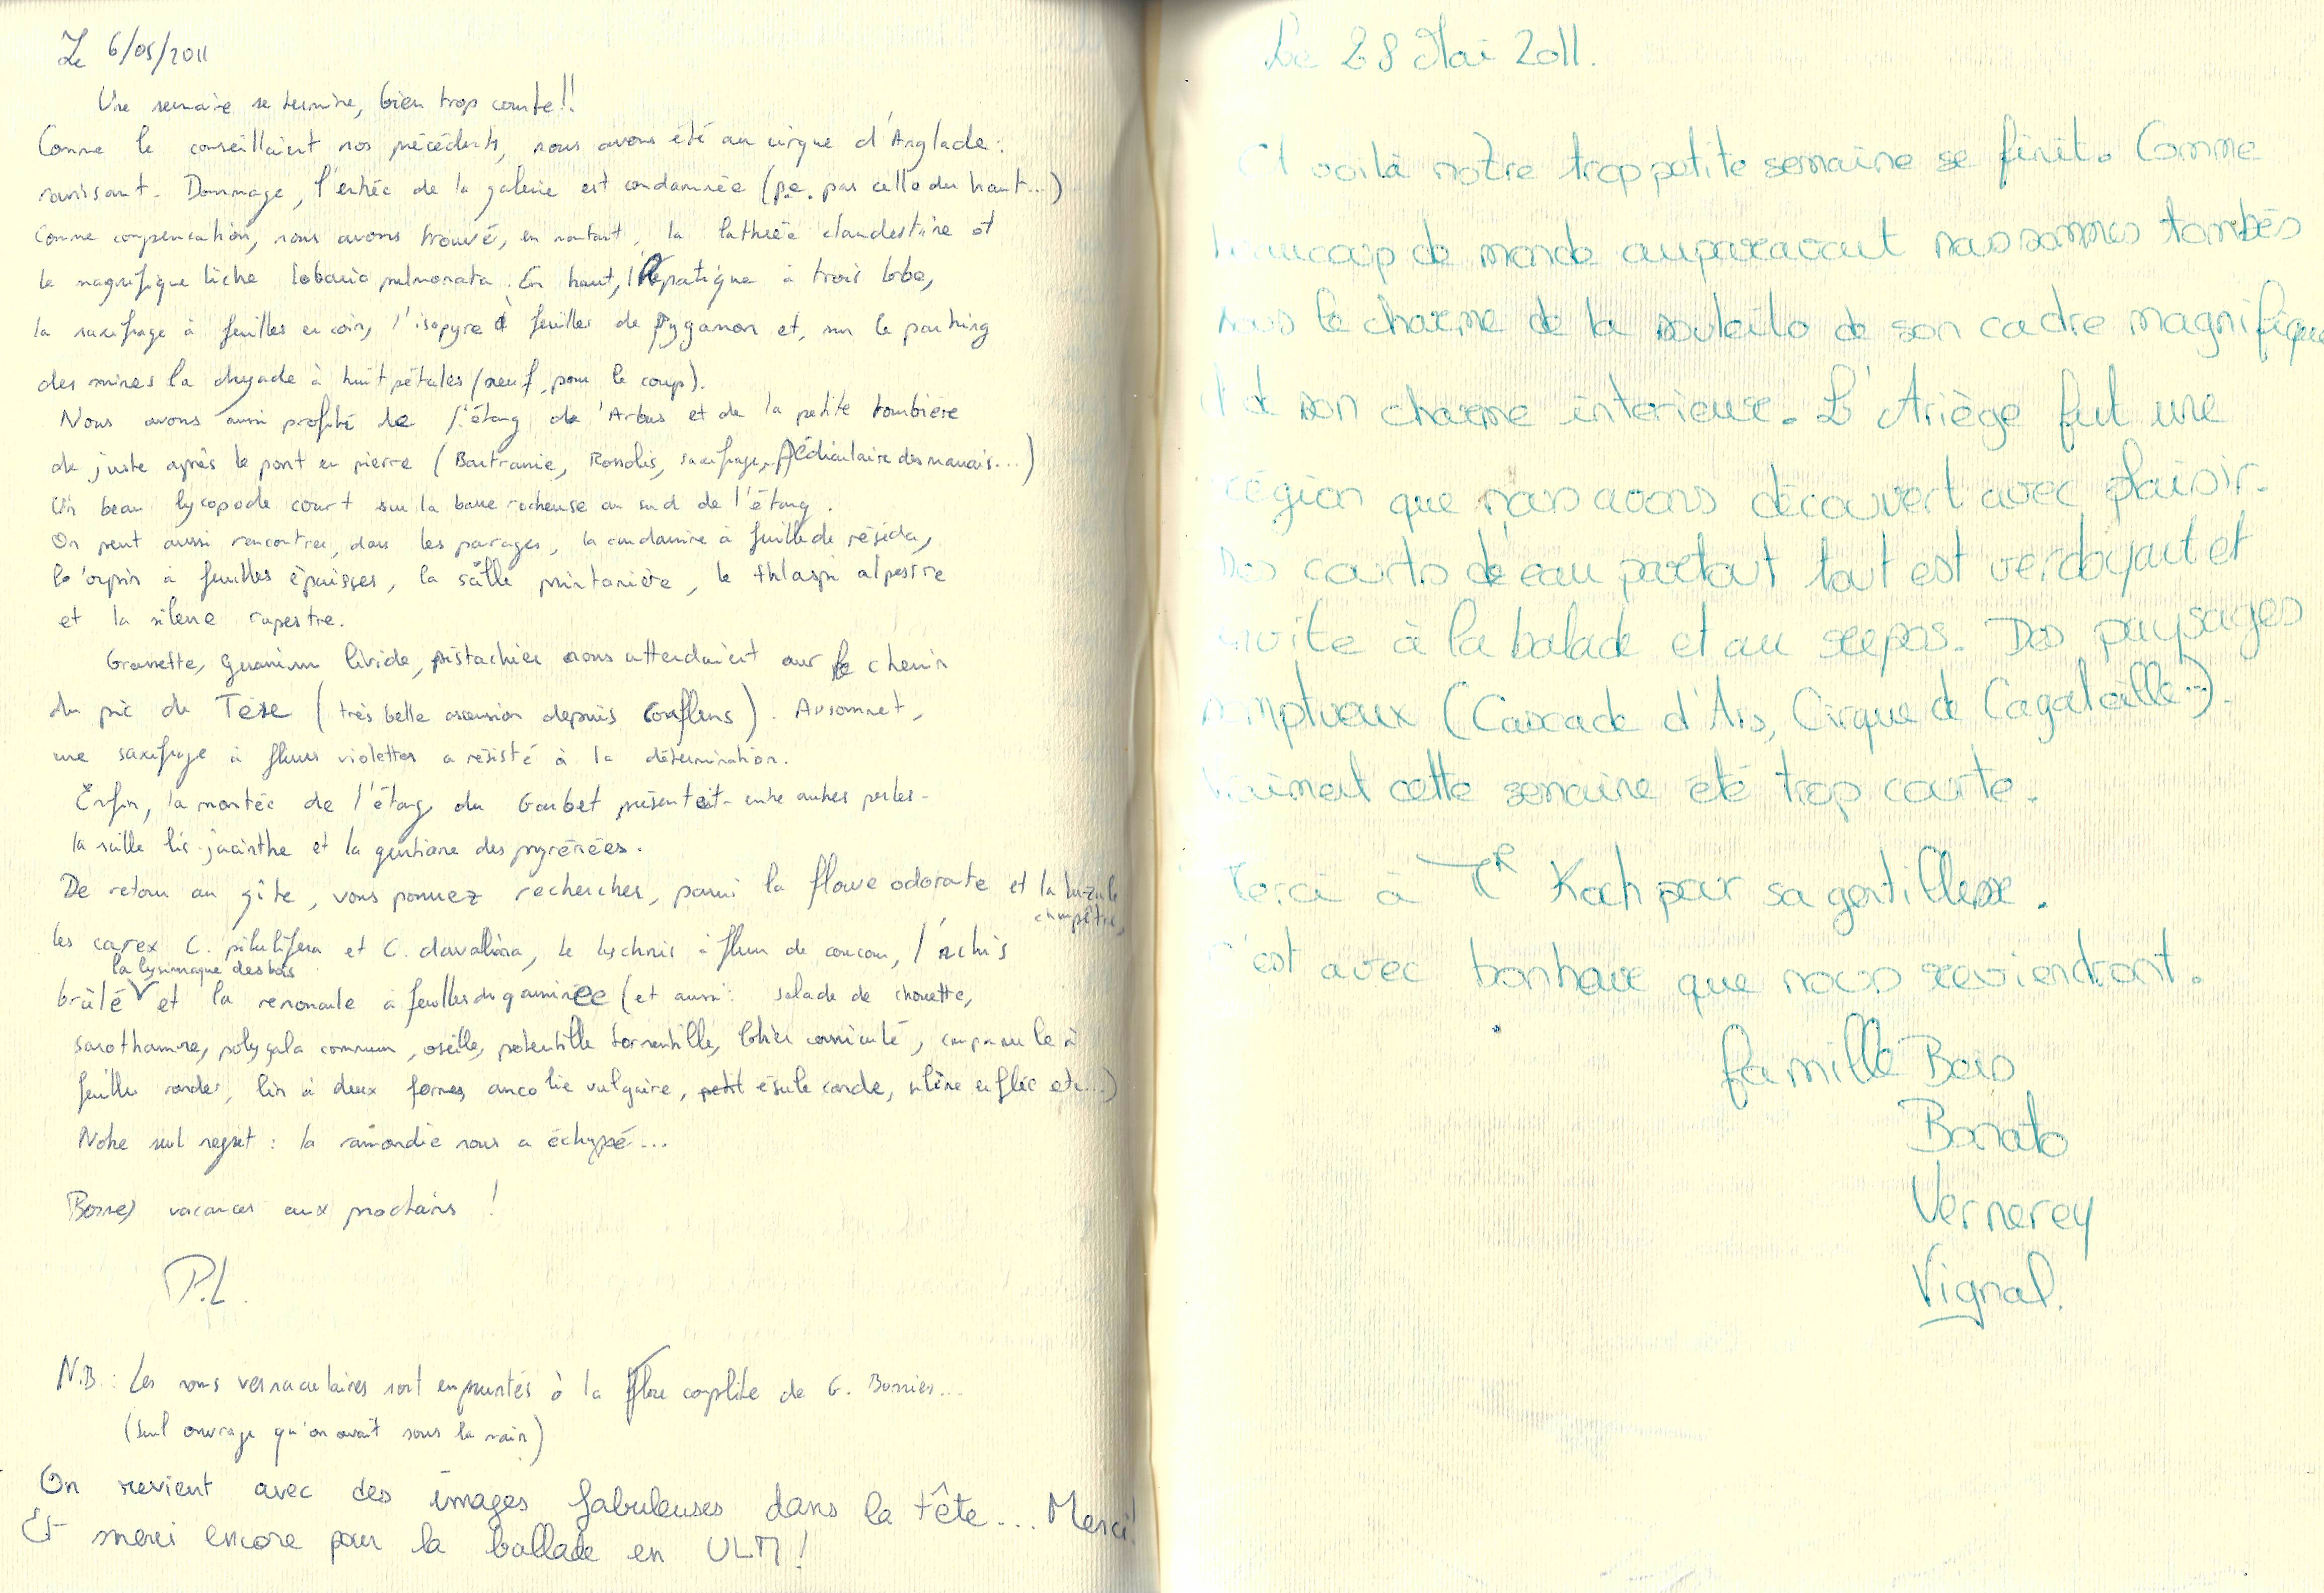 Le 6/05/2011
Une semaine se termine, bien trop courte!!
Comme le conseillaient nos précédents, nous avons été au cirque d'Anglade :
ravissant. Dommage, l'entrée de la galerie est condamnée (pe. pas celle du haut...)
Comme compensation, nous avons trouvé, en montant, la lathrée clandestine et
le magnifique liche lobaria pulmonata. En haut, l'hépatique à trois lobe,
la saxifrage à feuilles en coin, l'isopyre à feuilles de pygamon et, sur le parking
des mines la dryade à huit pétales (neuf, pour le coup).
Nous avons aussi profité de l'étang de l'Arbus et de la petite tourbière
de juste après le pont en pierre (Bartramie, Rossolis, saxifrage, Pédiculaire des marais...)
Un beau lycopode court sur la barre rocheuse au sud de l'étang.
On peut aussi rencontrer, dans les parages, la cardamine à feuille de réséda,
l'orpin à feuilles épaisses, la scille printanière, le thlaspi alpestre
et la silene rupestre.
Grassette, géranium livide, pistachier nous attendaient sur le chemin
du pic de Tèse (très belle ascension depuis Couflens). Au sommet,
une saxifrage à fleurs violettes a résisté à la détermination.
Enfin, la montée de l'étang du Garbet présentait - entre autres perles -
la scille lis-jacinthe et la gentiane des pyrénées.
De retour au gîte, vous pourrez rechercher, parmi la flouve odorante et la luzule
champêtre,
les carex C. pilulifera et C. davalliana, le lychnis à fleur de coucou, l'orchis
la lysimaque des bois
brûlé V et la renoncule à feuilles de graminée (et aussi : salade de chouette,
sarothamne, polygala commun, oseille, potentille tormentille, lotier corniculé, campanule à
feuilles rondes, lin à deux formes, ancolie vulgaire, petit ésule ronde, silène enflée etc...)
Notre seul regret : la ramondie nous a échappé...
Bonnes vacances aux prochains !
P.L.
N.B. : Les noms vernaculaires sont empruntés à la flore complète de G. Bonnier...
(seul ouvrage qu'on avait sous la main)
On revient avec des images fabuleuses dans la tête... Merci!
Et merci encore pour la ballade en ULM !
Le 28 Mai 2011.
Et voilà notre trop petite semaine se finit. Comme
beaucoup de monde auparavant nous sommes tombés
sous le charme de la souleilo de son cadre magnifique
et de son charme interieur. L'Ariège fut une
région que nous avons découvert avec plaisir.
Des courts d'eau partout tout est verdoyant et
invite à la balade et au repos. Des paysages
somptueux (Cascade d'Ars, Cirque de Cagateille...).
Vraiment cette semaine été trop courte.
Merci à Mr Koch pour sa gentillesse.
C'est avec bonheur que nous reviendront.
famille Bois
Bonato
Vernerey
Vignal.